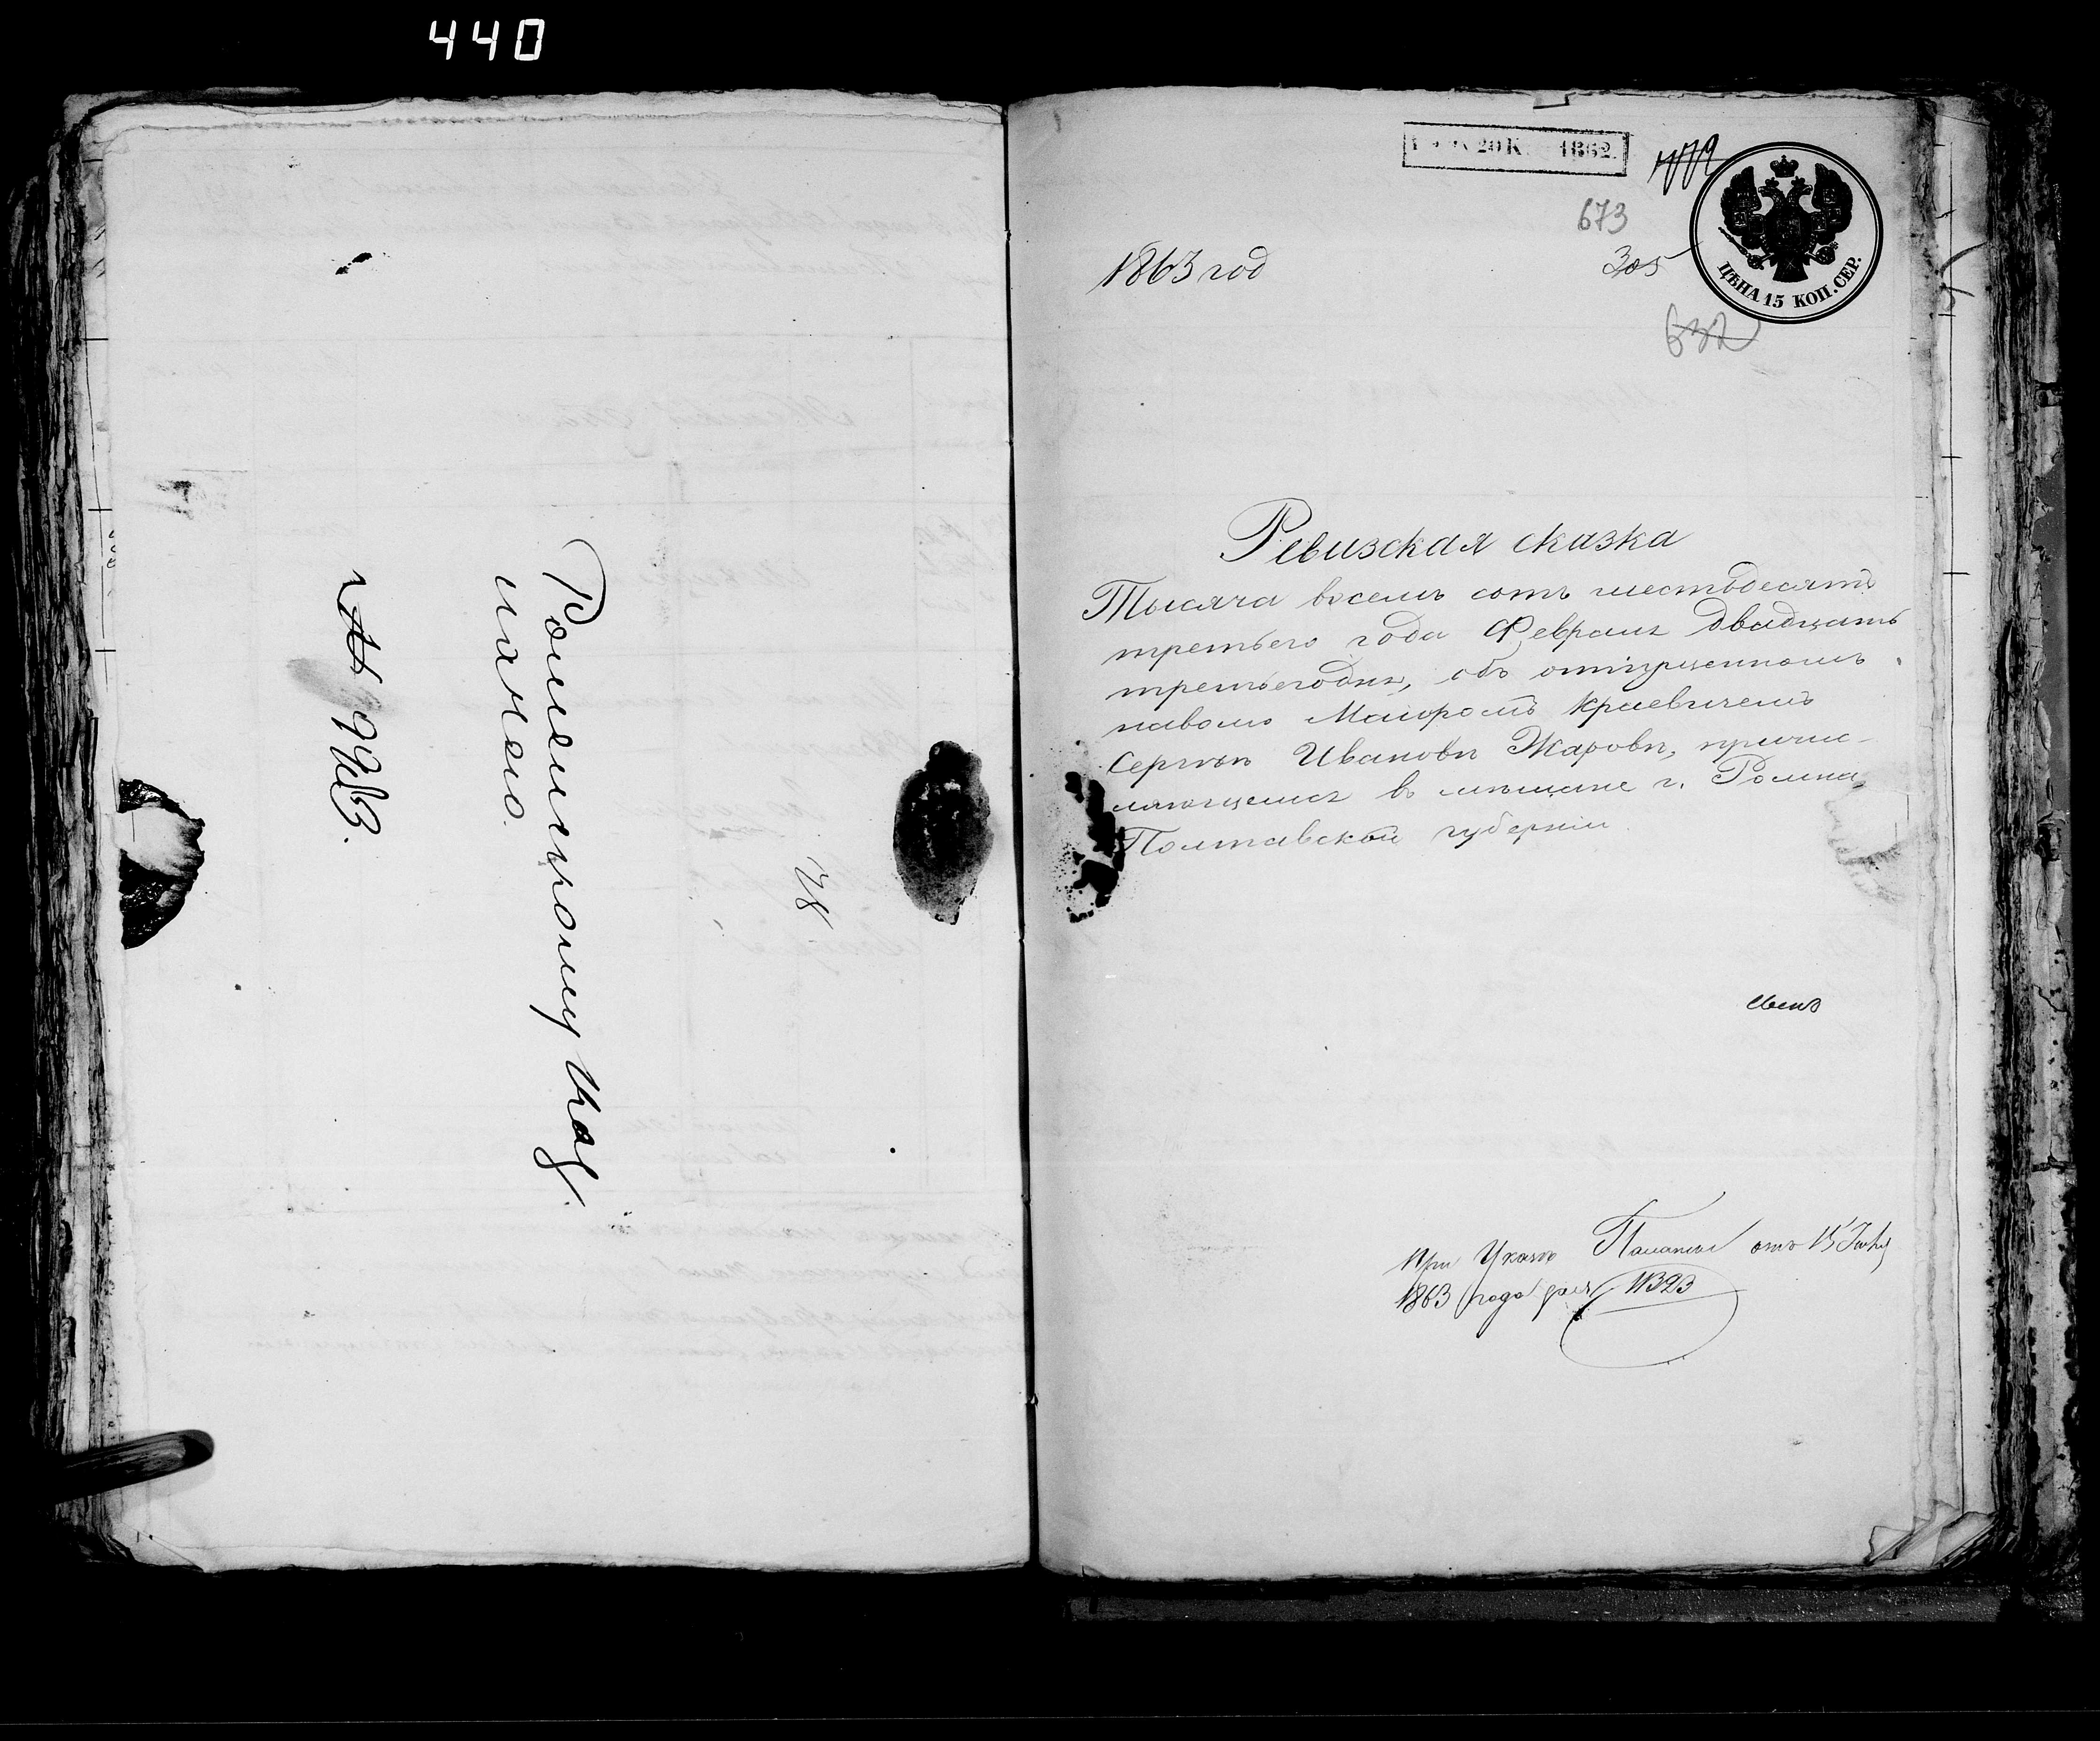 440
Роменскому Каз
начею.
78
1862.
673
305
632
ЦѢНА 15 КОП. СЕР.
1863 год
Ревизская сказка
Тысяча восемь сотъ шестьдесятъ
третьего года Февраля двадцать
третьего дня, объ отпущенномъ
наволю Маиоромъ Краевичемъ
Сергѣѣ Ивановѣ Жаровѣ, причис-
ляющемся въ мещане г. Ромна
Полтавской губерніи
При Указѣ Палаты отъ 15
1863 года за № 1323